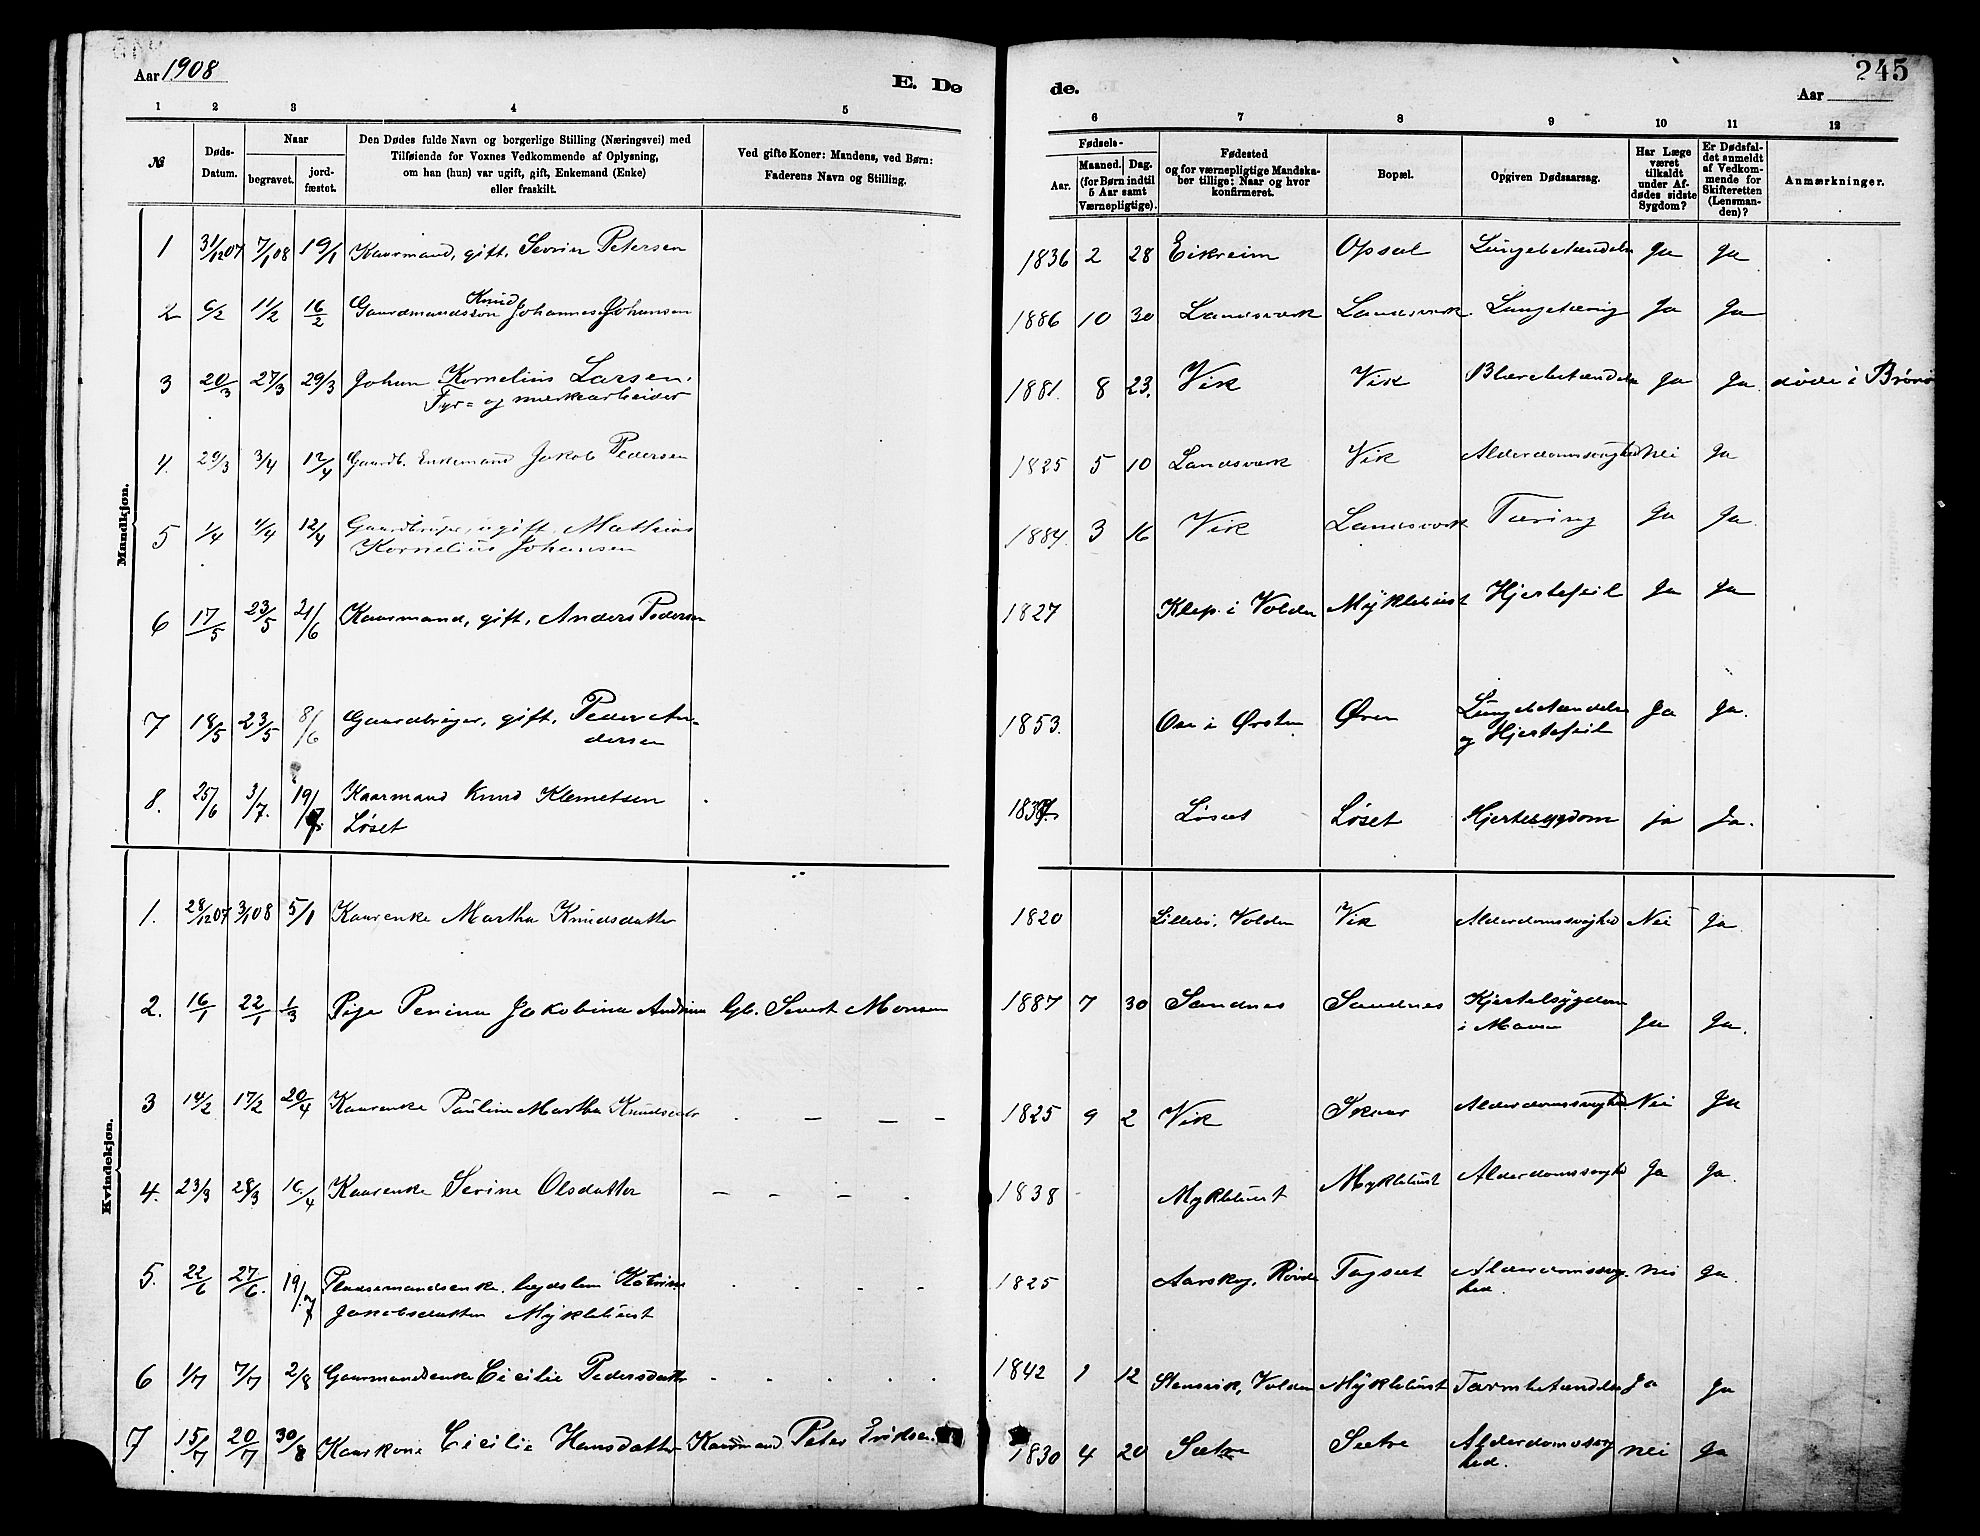 Aar 1908
E. Dø
de.
245
Aar
1 2 3 4 5 6 7 8 9 10 11 12
№
Døds-
Datum.
Naar
begravet.
jord-
fæstet.
Den Dødes fulde Navn og borgerlige Stilling (Næringsvei) med
Tilføiende for Voxnes Vedkommende af Oplysning,
om han (hun) var ugift, gift, Enkemand (Enke)
eller fraskilt.
Ved gifte Koner: Mandens, ved Børn:
Faderens Navn og Stilling.
Fødsels-
Aar.
Maaned. Dag.
(for Børn indtil
5 Aar samt
Værnepligtige).
Fødested
og for værnepligtige Mandska-
ber tillige: Naar og hvor
konfirmeret.
Bopæl.
Opgiven Dødsaarsag.
Har Læge
været
tilkaldt
under Af-
dødes sidste
Sygdom?
Er Dødsfal-
det anmeldt
af Vedkom-
mende for
Skifteretten
(Lensman-
den)?
Anmærkninger.
Mandkjøn.
1 31/12 07 7/1 08 19/1 Kaarmand, gift, Sevrin Petersen 1836 2 28 Eikreim Opsal Lungebetændelse Ja Ja
2 6/2 11/2 16/2 Gaardmandssøn Knud Johannes Johansen 1886 10 30 Landsverk Landsverk Lungetæring Ja Ja
3 20/3 27/3 29/3 Johan Kornelius Larsen, 1881. 8 23. Vik Vik Blærebetændelse Ja Ja døde i Brønø
Fyr- og merkearbeider
4. 29/3 3/4 12/4 Gaardb. Enkemand Jakob Pedersen 1825 5 10 Landsverk Vik Alderdomssvaghed Nei Ja
5 1/4 4/4 12/4 Gaardbruger, ugift, Mathias 1884. 3 16 Vik Landsverk Tæring Ja Ja.
Kornelius Johansen
6 17/5 23/5 21/6 Kaarmand, gift, Anders Pedersen 1827 Klep i Volden Myklebust Hjertefeil Ja Ja
7 18/5 23/5 8/6 Gaardbruger, gift, Peder An- 1853. Ose i Ørsten Øren Lungebetændelse Ja Ja.
dersen og Hjertefeil
8. 25/6 3/7. 19/7 Kaarmand Knud Klemetsen Løset Løset Hjertesygdom ja Ja.
Løset
Kvindekjøn.
1. 28/12 07 3/1 08 5/1 Kaarenke Martha Knudsdatter 1820 Lillebø, Volden Vik Alderdomssvaghed Nei Ja
2. 16/1 22/1 1/3 Pige Penina Jakobina Andrina Gb. Severt Monsen 1887 7 30 Sandnes Sandnes Kjertelsygdom Ja Ja.
i Maven
3 14/2 17/2 20/4 Kaarenke Pauline Martha Knudsdatter 1825 9 2 Vik Skaar Alderdomssvaghed Nei Ja
4. 23/3 28/3 16/4 Kaarenke Serine Olsdatter 1838 Myklebust Myklebust Alderdomssvaghed Ja Ja.
5. 22/6 27/6. 19/7 Pladsemandsenke, lægdslem Katrine 1825 Aarskog, Rovde Tagset Alderdomssvag- nei Ja.
Jakobsdatter Myklebust hed.
6 1/7 7/7 2/8 Gaarmandsenke Cicilie Pedersdatter 1842 1 12 Stensvik, Volden Myklebust Tarmbetændelse Ja Ja
7 15/7 20/7 30/8 Kaarkone Cicilie Hansdatter Kaarmand Peter Eriksen 1830 4 20 Sætre Sætre Alderdomssvag- nei Ja
hed.